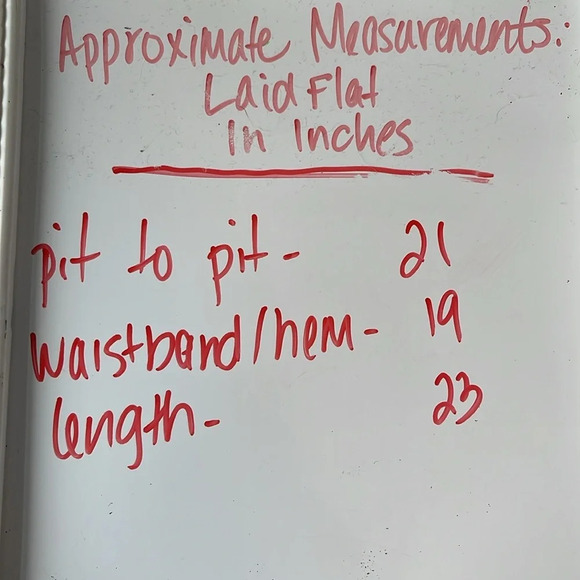 Approximate Measurements:
Laid Flat
In Inches
pit to pit - 21
waistband/hem - 19
length - 23